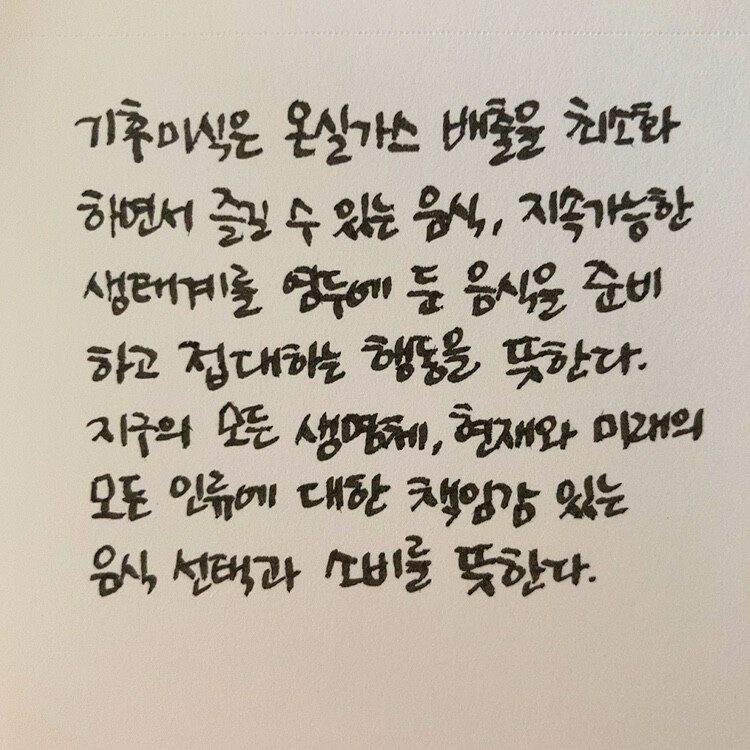 기후미식은 온실가스 배출을 최소화
하면서 즐길 수 있는 음식, 지속가능한
생태계를 염두에 둔 음식을 준비
하고 접대하는 행동을 뜻한다.
지구의 모든 생명체, 현재와 미래의
모든 인류에 대한 책임감 있는
음식 선택과 소비를 뜻한다.